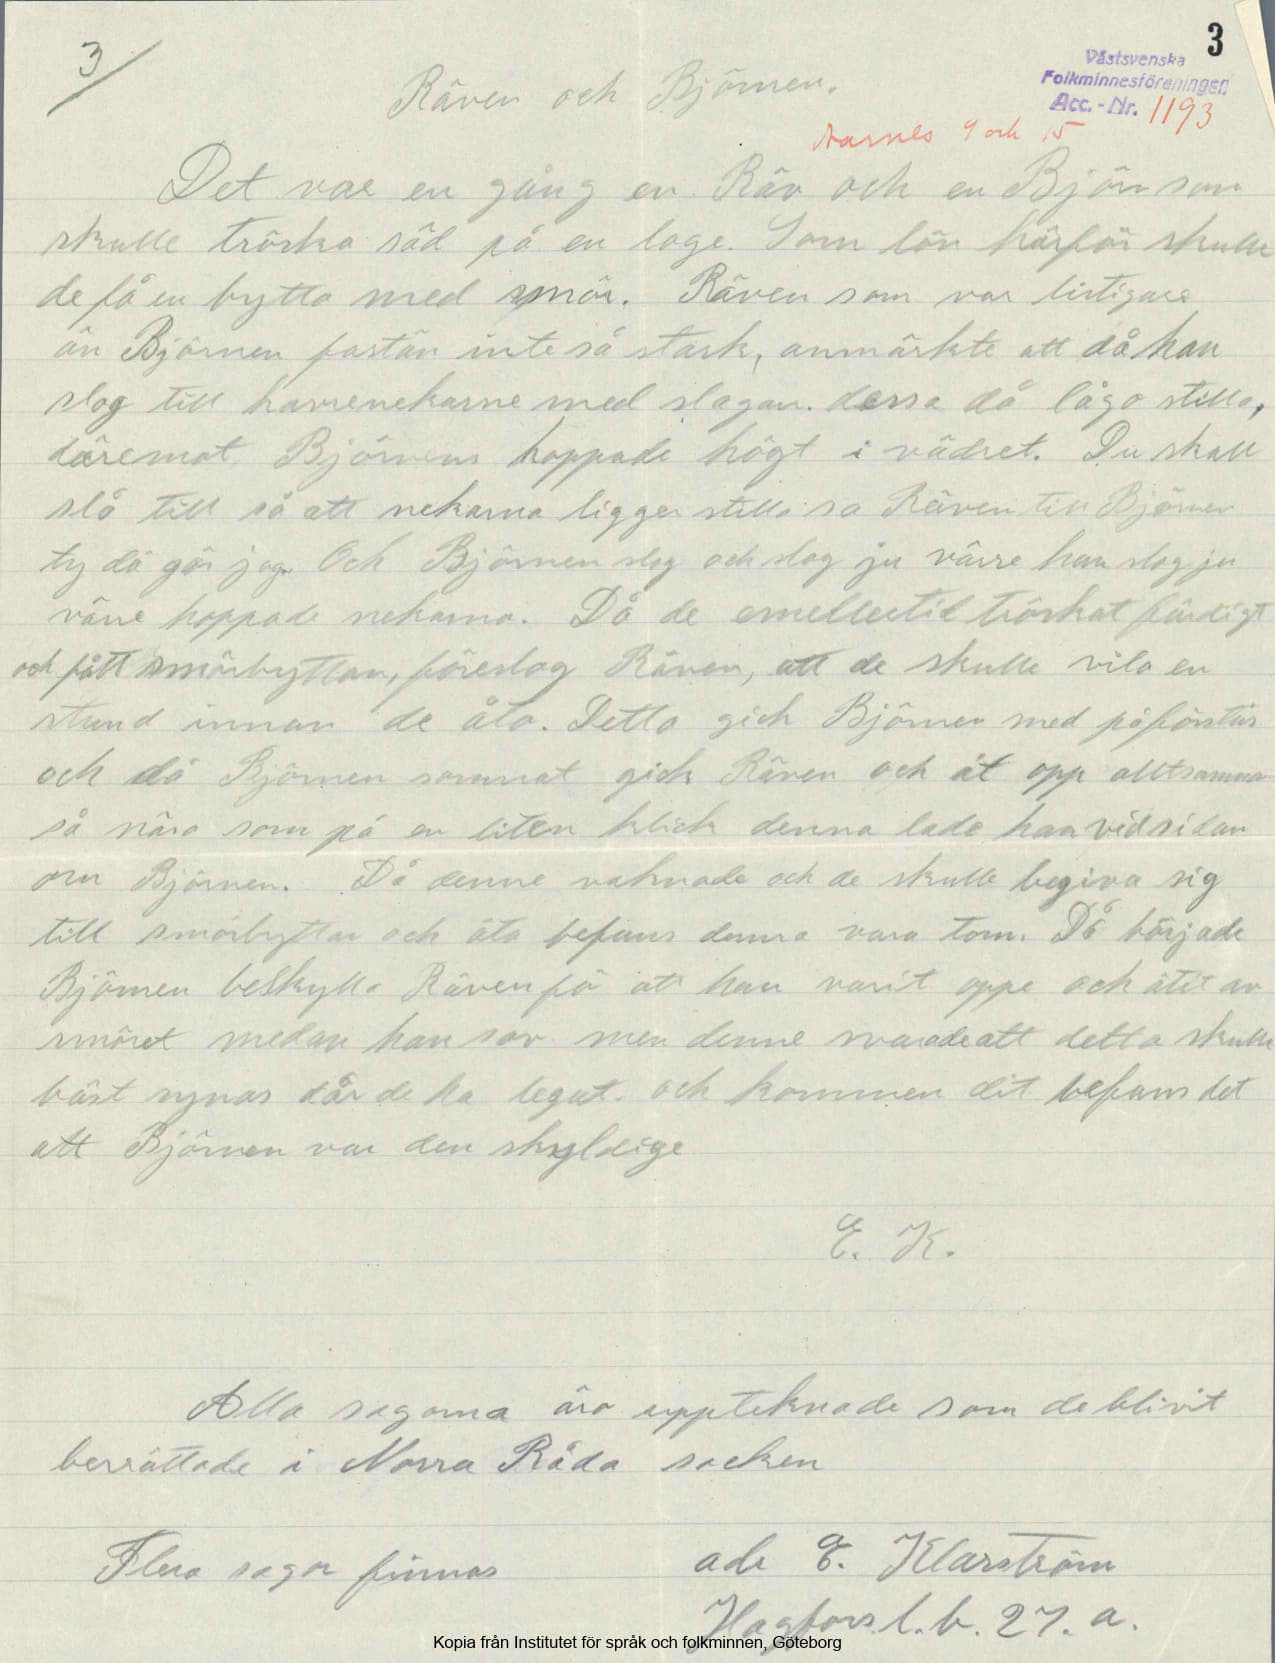 3
3/
Västsvenska
Folkminnesföreningen
Acc.-Nr. 1193
Räven och Björnen.
Aarnes 9 och 15
Det var en gång en Räv och en Björn som
skulle tröska säd på en loge. Som lön härför skulle
de få en bytta med smör. Räven som var listigare
än Björnen fastän inte så stark, anmärkte att då han
slog till havrenekarne med slagan. dessa då lågo stilla,
däremot Björnens hoppade högt i vädret. Du skall
slå till så att nekarna ligger stilla sa Räven till Björnen
ty då gör jag. Och Björnen slog och slog ju värre han slog ju
värre hoppade nekarna. Då de emellertid tröskat färdigt
och fått smörbyttan, föreslog Räven, att de skulle vila en
stund innan de åto. Detta gick Björnen med på förstås
och då Björnen somnat gick Räven och åt opp alltsamman
så nära som på en liten klick denna lade han vid sidan
om Björnen. Då denne vaknade och de skulle begiva sig
till smörbyttan och äta befans denna vara tom. Då började
Björnen beskylla Räven fö att han varit oppe och ätit av
smöret medan han sov men denne svarade att detta skulle
bäst synas där de ha legat. och kommen dit befans det
att Björnen var den skyldige
E. K.
Alla sagorna äro uppteknade som de blivit
berättade i Norra Råda socken
Flera sagor finnas
adr E. Klarström
Hagfors l.b. 27. a.
Kopia från Institutet för språk och folkminnen, Göteborg